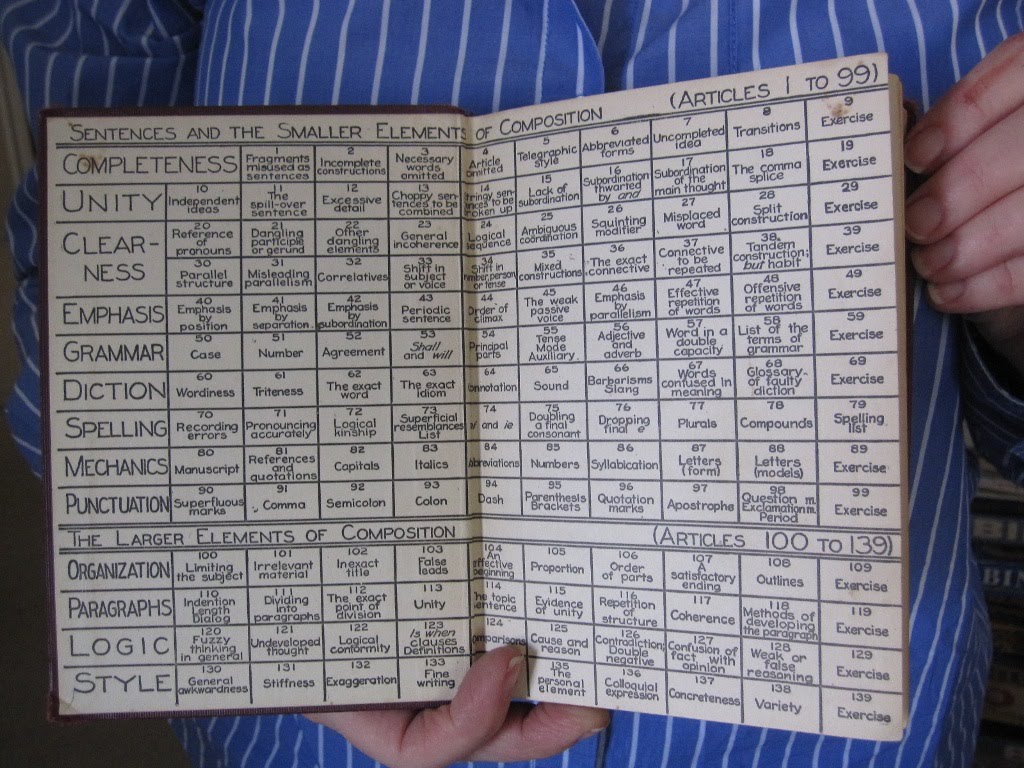 SENTENCES AND THE SMALLER ELEMENTS OF COMPOSITION (ARTICLES 1 TO 99)
COMPLETENESS 1 Fragments misused as sentences 2 Incomplete constructions 3 Necessary words omitted 4 Article omitted 5 Telegraphic style 6 Abbreviated forms 7 Uncompleted idea 8 Transitions 9 Exercise
UNITY 10 Independent ideas 11 The spill-over sentence 12 Excessive detail 13 Choppy sentences to be combined 14 to be broken up 15 Lack of subordination 16 Subordination thwarted by and 17 Subordination of the main thought 18 The comma splice 19 Exercise
CLEAR-NESS 20 Reference of pronouns 21 Dangling participle or gerund 22 Other dangling elements 23 General incoherence 24 Logical sequence 25 Ambiguous coordination 26 Squinting modifier 27 Misplaced word 28 Split construction 29 Exercise
30 Parallel structure 31 Misleading parallelism 32 Correlatives 33 Shift in subject or voice 34 Shift in number, person or tense 35 Mixed constructions 36 The exact connective 37 Connective to be repeated 38 Tandem construction; but habit 39 Exercise
EMPHASIS 40 Emphasis by position 41 Emphasis by separation 42 Emphasis by subordination 43 Periodic sentence 44 Order of climax 45 The weak passive voice 46 Emphasis by parallelism 47 Effective repetition of words 48 Offensive repetition of words 49 Exercise
GRAMMAR 50 Case 51 Number 52 Agreement 53 Shall and will 54 Principal parts 55 Tense Mode Auxiliary 56 Adjective and adverb 57 Word in a double capacity 58 List of the terms of grammar 59 Exercise
DICTION 60 Wordiness 61 Triteness 62 The exact word 63 The exact idiom 64 Connotation 65 Sound 66 Barbarisms Slang 67 Words confused in meaning 68 Glossary of faulty diction 69 Exercise
SPELLING 70 Recording errors 71 Pronouncing accurately 72 Logical kinship 73 Superficial resemblances List 74 and ie 75 Doubling a final consonant 76 Dropping final e 77 Plurals 78 Compounds 79 Spelling list
MECHANICS 80 Manuscript 81 References and quotations 82 Capitals 83 Italics 84 Abbreviations 85 Numbers 86 Syllabication 87 Letters (form) 88 Letters (models) 89 Exercise
PUNCTUATION 90 Superfluous marks 91 Comma 92 Semicolon 93 Colon 94 Dash 95 Parenthesis Brackets 96 Quotation marks 97 Apostrophe 98 Question m. Exclamation m. Period 99 Exercise
THE LARGER ELEMENTS OF COMPOSITION (ARTICLES 100 TO 139)
ORGANIZATION 100 Limiting the subject 101 Irrelevant material 102 Inexact title 103 False leads 104 An effective beginning 105 Proportion 106 Order of parts 107 A satisfactory ending 108 Outlines 109 Exercise
PARAGRAPHS 110 Indention Length Dialog 111 Dividing into paragraphs 112 The exact point of division 113 Unity 114 The topic sentence 115 Evidence of unity 116 Repetition of structure 117 Coherence 118 Methods of developing the paragraph 119 Exercise
LOGIC 120 Fuzzy thinking in general 121 Undeveloped thought 122 Logical conformity 123 Is when clauses Definitions 124 Comparisons 125 Cause and reason 126 Contradiction; Double negative 127 Confusion of fact with opinion 128 Weak or false reasoning 129 Exercise
STYLE 130 General awkwardness 131 Stiffness 132 Exaggeration 133 Fine writing 135 The personal element 136 Colloquial expression 137 Concreteness 138 Variety 139 Exercise